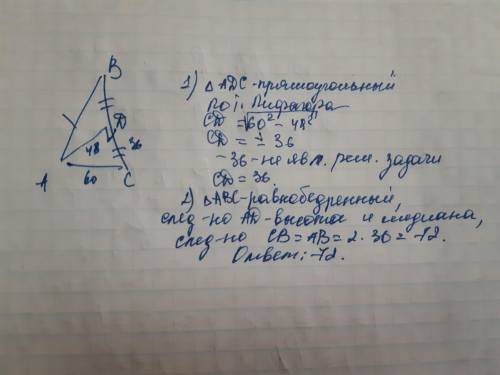 B
D
48
36
A
60
C
1) △ADC-прямоугольный
по т. Пифагора
CD = √60² - 48²
CD = ± 36
-36-не явл. реш. задачи
CD = 36.
2) △ABC-равнобедренный,
след-но AD-высота и медиана,
след-но CB = AB = 2·36 = 72.
Ответ: 72.